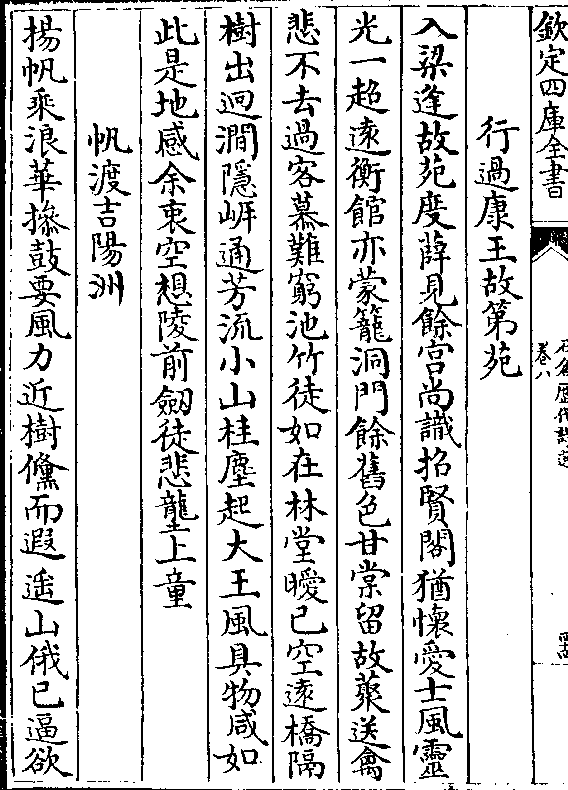 欽定四庫全書
石倉歷代詩選
卷八
行過康王故第苑
入梁逢故苑度薛見餘宫尚識招賢閣猶懷愛士風靈
光一超遠衡館亦蒙籠洞門餘舊色甘棠留故藂送禽
悲不去過客慕難窮池竹徒如在林堂曖已空遠橋隔
樹出迥澗隱岍通芳流小山桂塵起大王風具物咸如
此是地感余衷空想陵前劒徒悲壟上童
帆渡吉陽洲
揚帆乘浪華摻鼓要風力近樹儵而遐遥山俄已逼欲